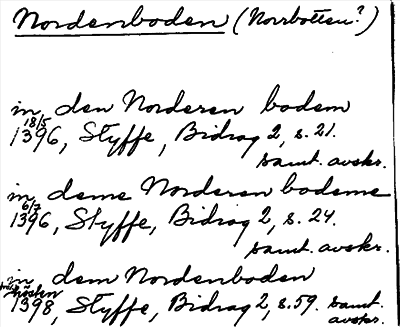 Nordenboden (Norrbotten?)
in den Norderen bodem
18/5
1396, Styffe, Bidrag 2, s. 21.
samt. avskr.
in deme Norderen bodeme
6/7
1396, Styffe, Bidrag 2, s. 24.
samt. avskr.
in dem Nordenboden
hösten
1398, Styffe, Bidrag 2, s. 59. samt.
avskr.